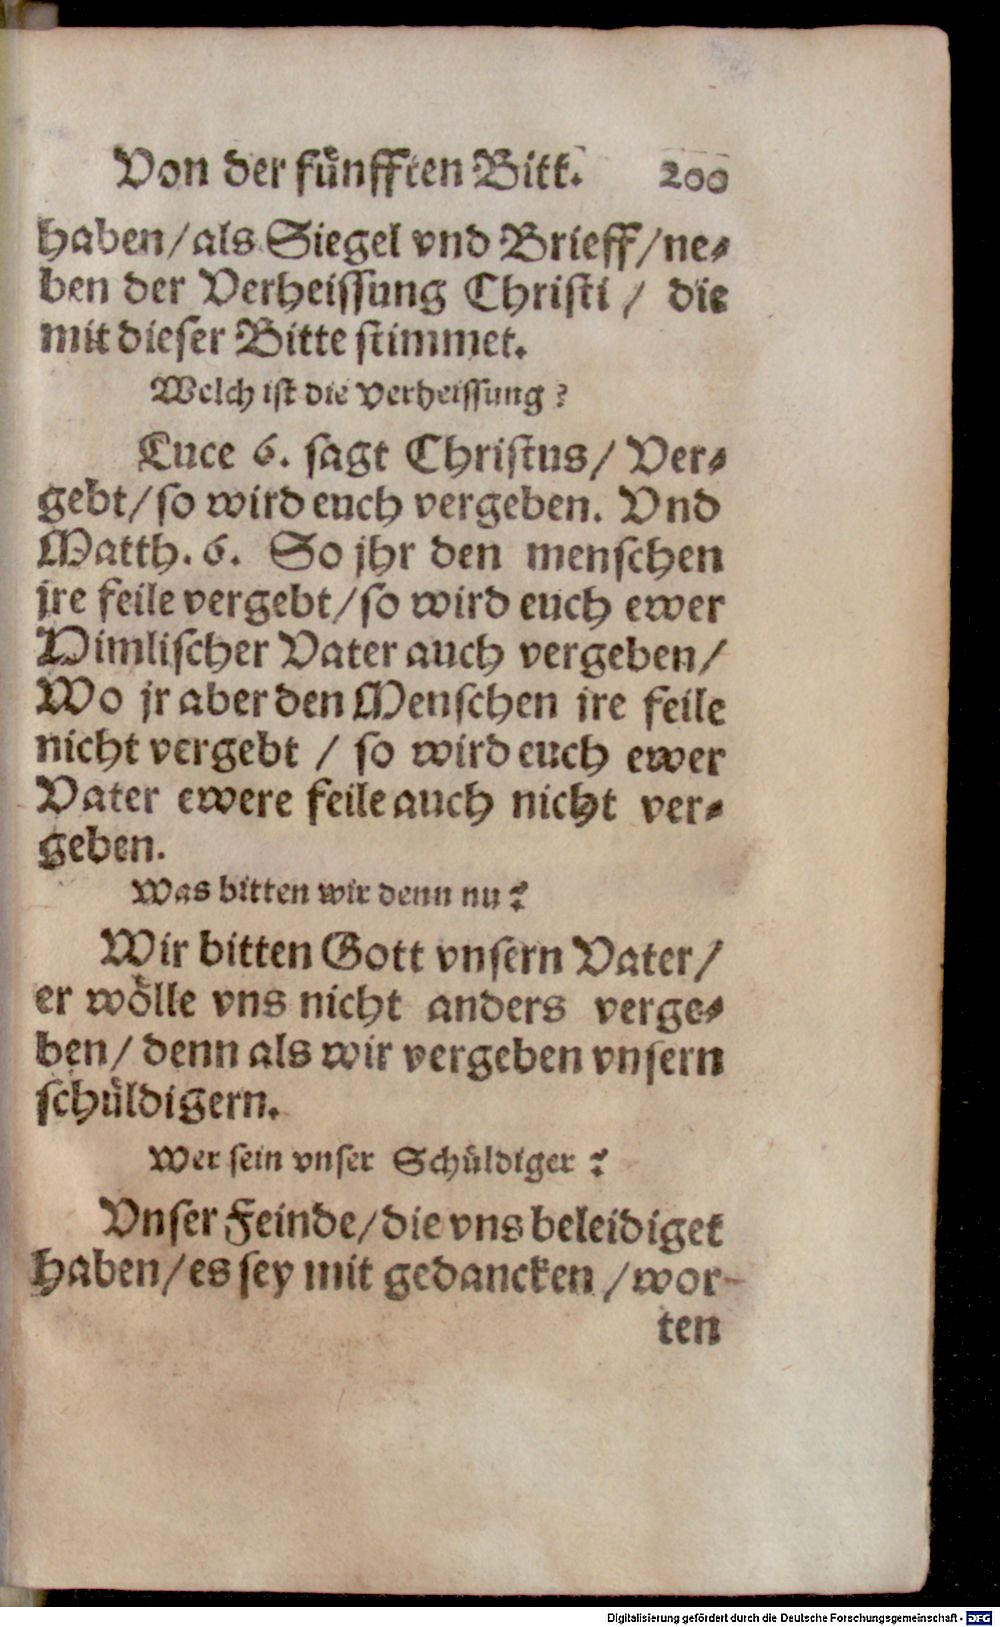 Von der fünfften Bitt. 200
haben/als Siegel vnd Brieff/ne-
ben der Verheissung Christi / die
mit dieser Bitte stimmet.
Welch ist die verheissung?
Luce 6. sagt Christus/ Ver-
gebt/so wird euch vergeben. Vnd
Matth. 6. So jhr den menschen
jre feile vergebt/so wird euch ewer
Himlischer Vater auch vergeben/
Wo jr aber den Menschen jre feile
nicht vergebt / so wird euch ewer
Vater ewere feile auch nicht ver-
geben.
Was bitten wir denn nu?
Wir bitten Gott vnsern Vater/
er wölle vns nicht anders verge-
ben/ denn als wir vergeben vnsern
schüldigern.
Wer sein vnser Schüldiger?
Vnser Feinde/die vns beleidiget
haben/es sey mit gedancken /wor-
ten
Digitalisierung gefördert durch die Deutsche Forschungsgemeinschaft - DFG